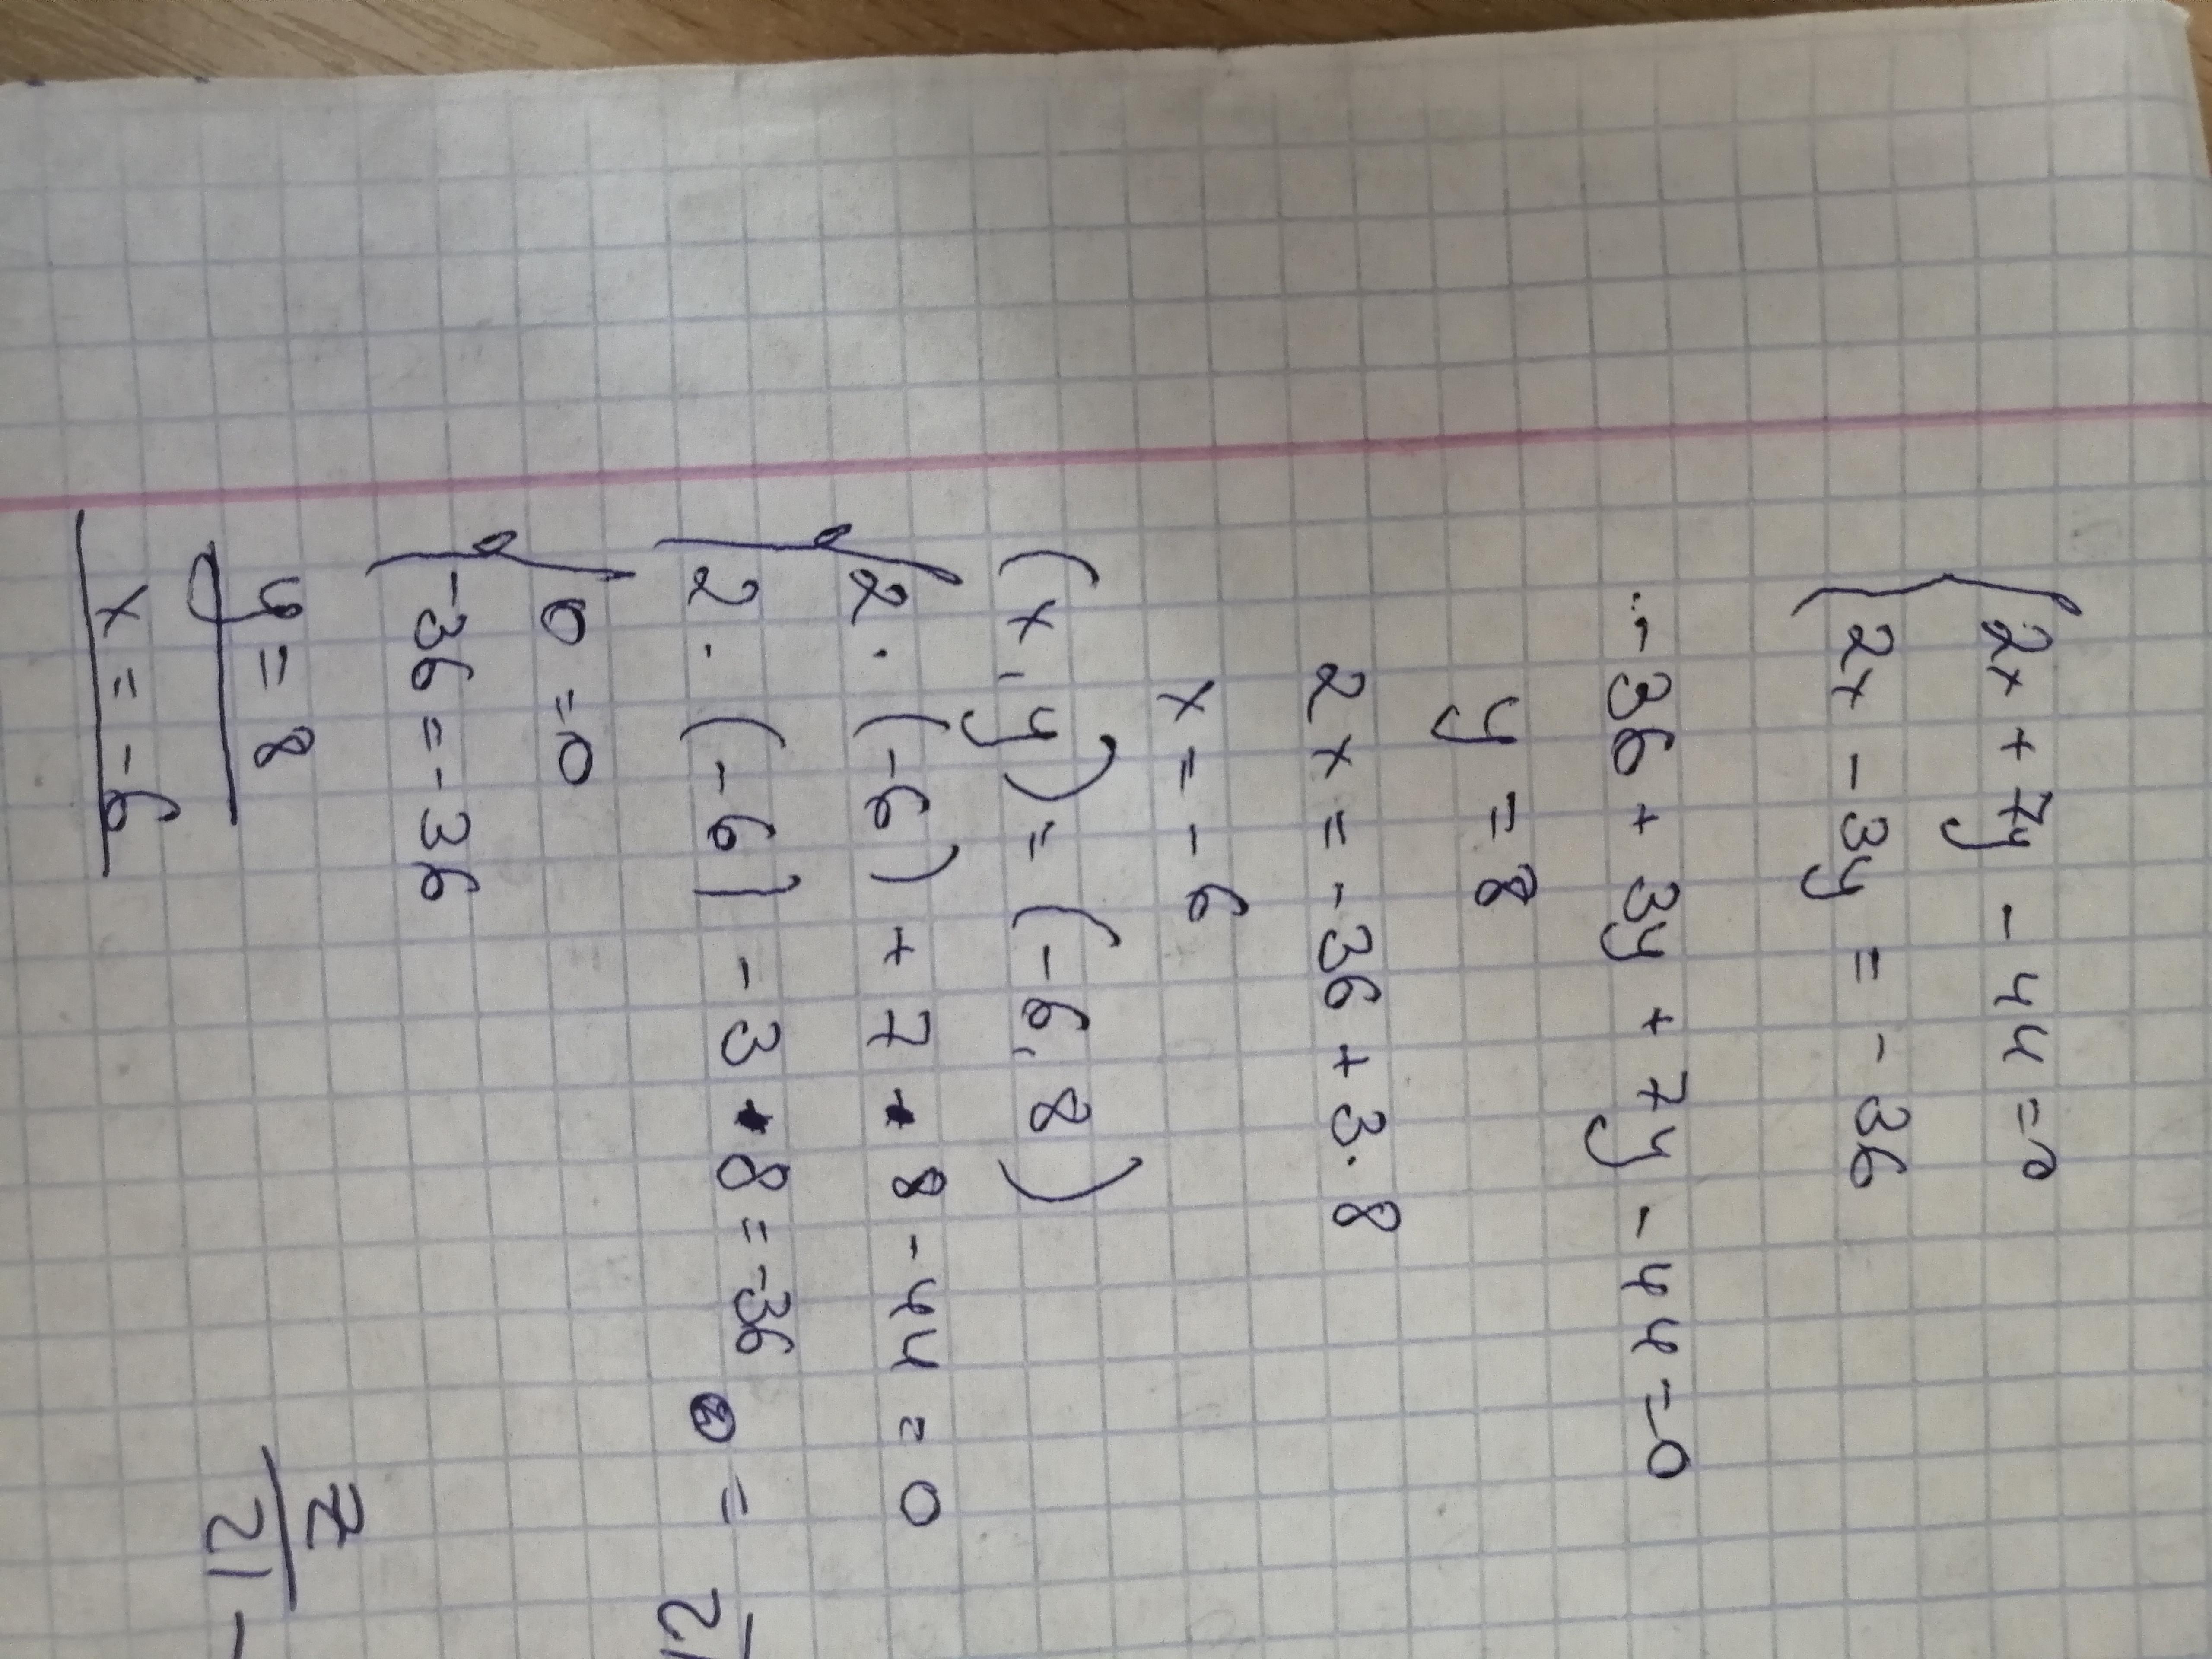 2x + 7y - 44 = 0
2x - 3y = - 36
-36 + 3y + 7y - 44 = 0
y = 8
2x = - 36 + 3 · 8
x = - 6
(x, y) = (-6, 8)
2 · (-6) + 7 · 8 - 44 = 0
2 · (-6) - 3 · 8 = -36
0 = 0
-36 = - 36
y = 8
x = - 6